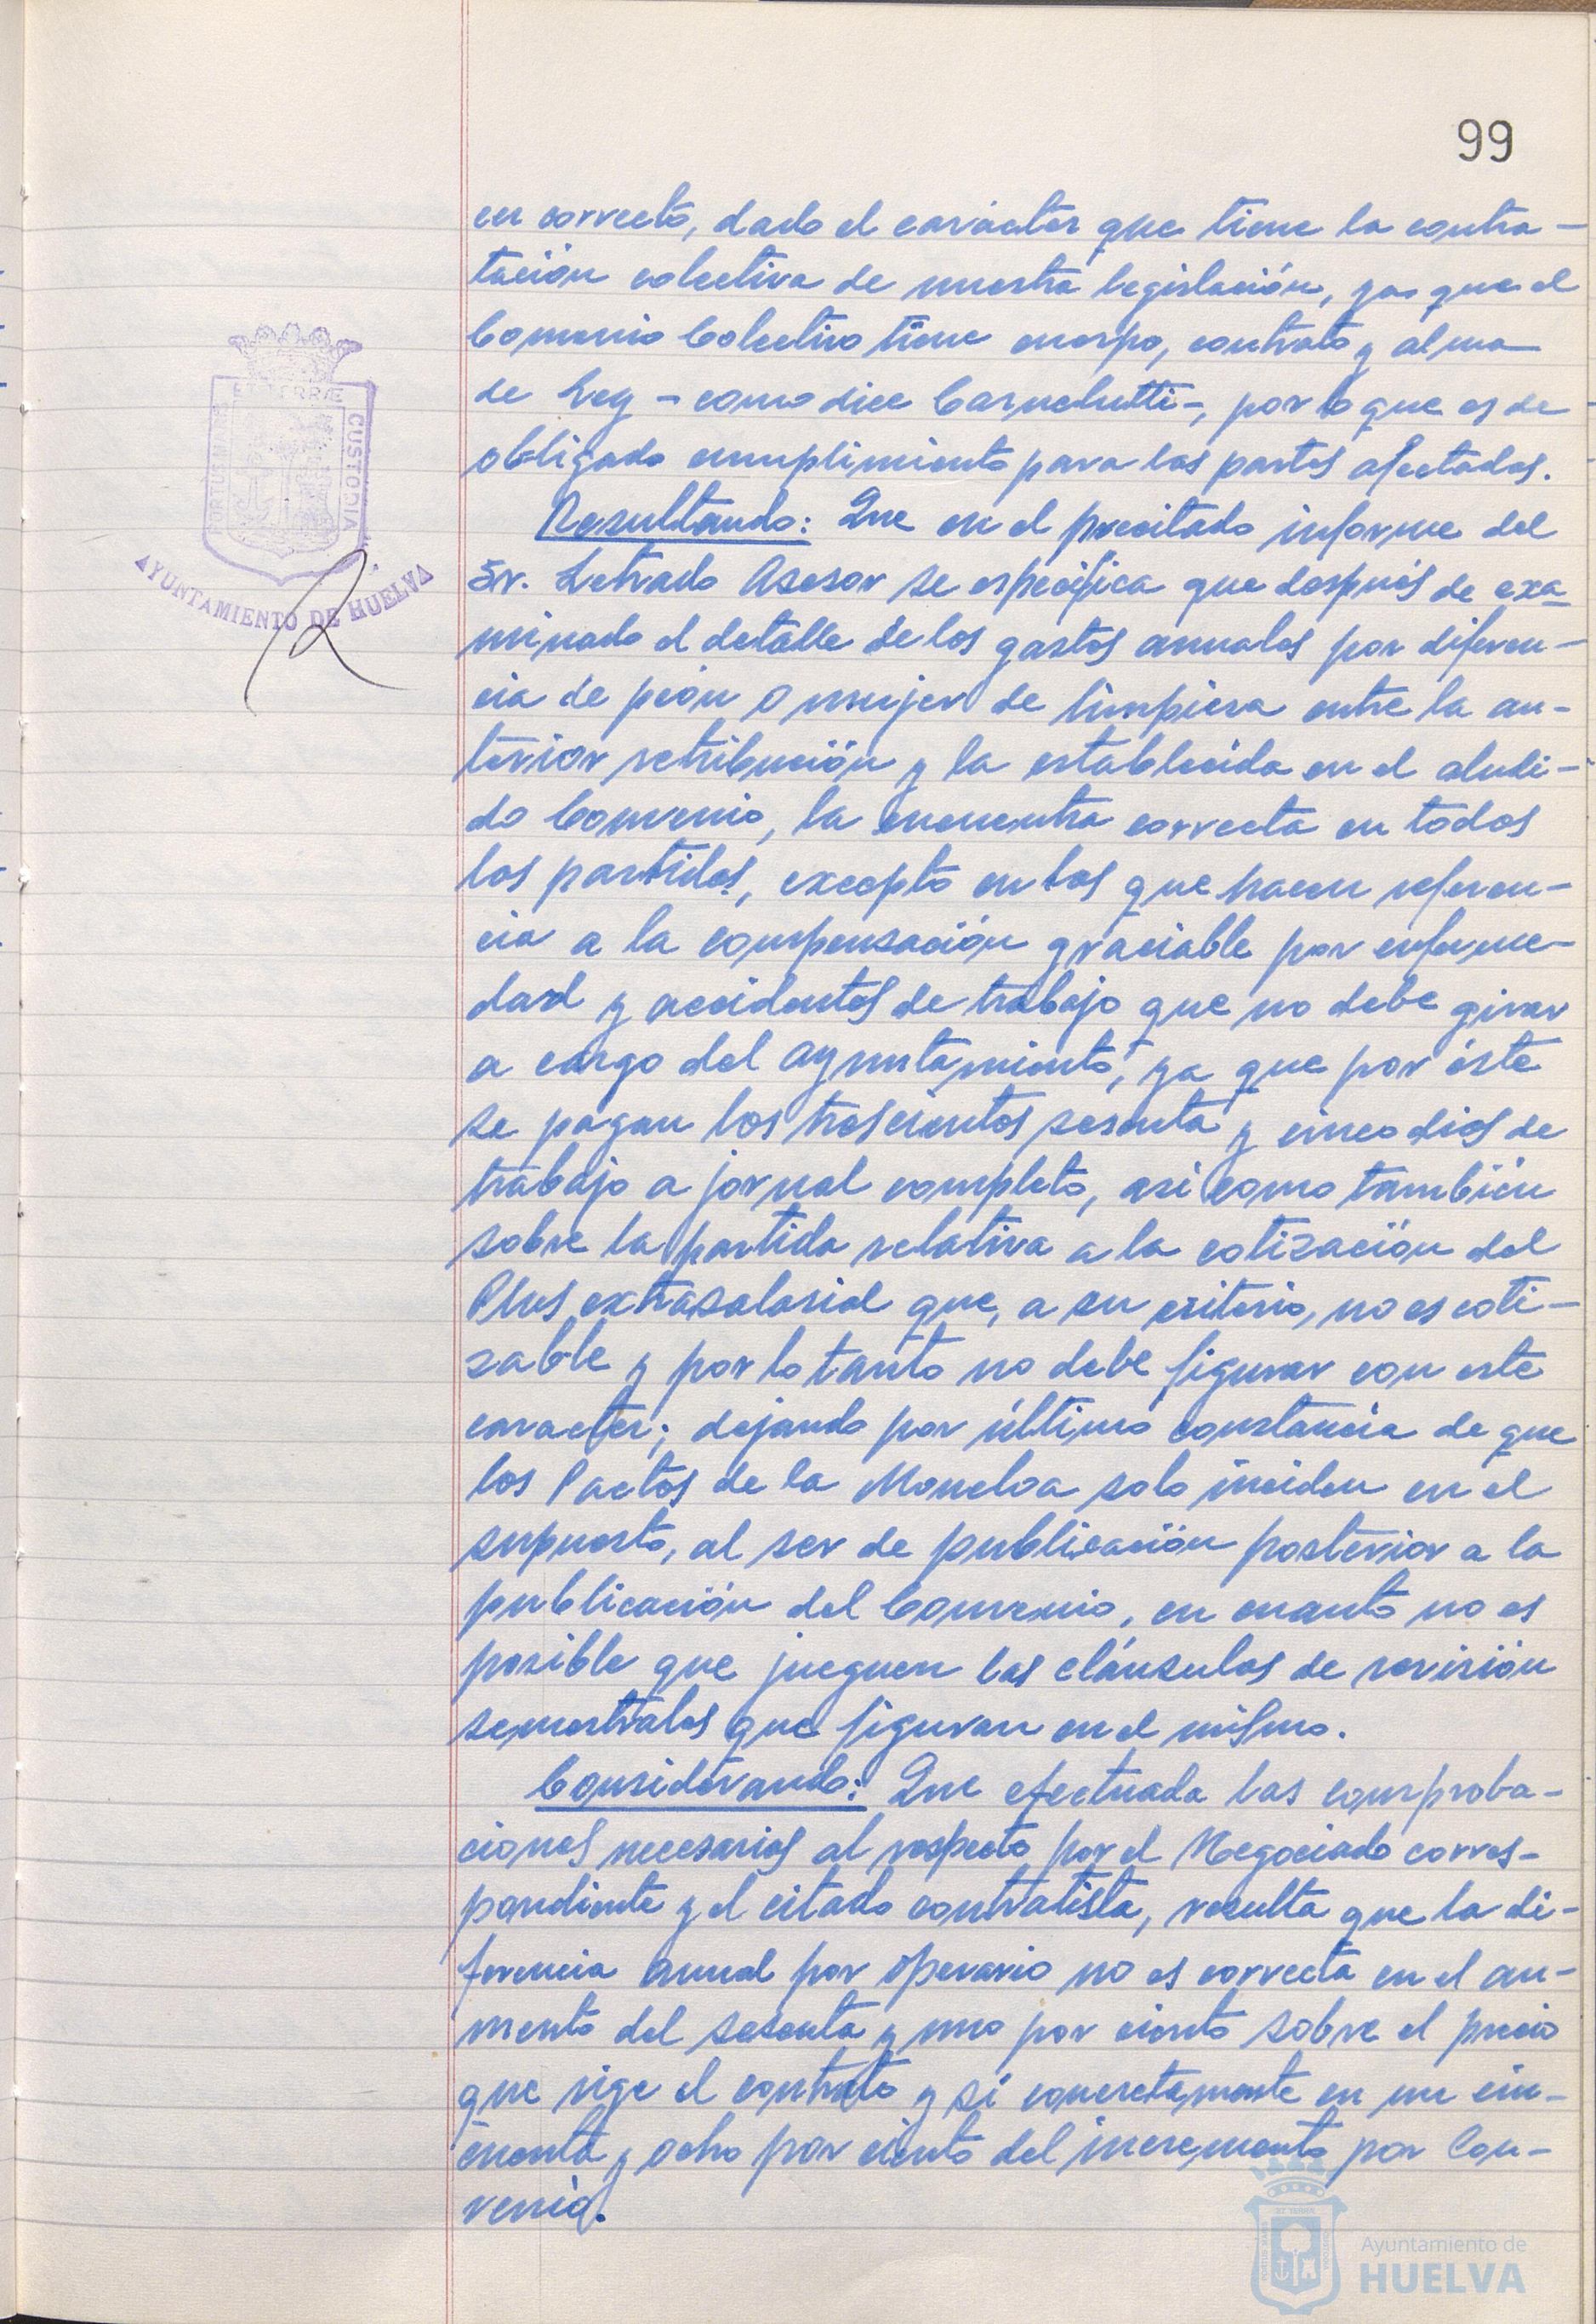 99
en correcto, dado el carácter que tiene la contra-
tación colectiva de nuestra legislación, ya que el
Convenio Colectivo tiene cuerpo, contrato y alma
de Ley - como dice Carnelutti -, por lo que es de
obligado cumplimiento para las partes afectadas.
Resultando: Que en el precitado informe del
Sr. Letrado Asesor se especifica que después de exa-
minado el detalle de los gastos anuales por diferen-
cia de peón o mujer de limpieza entre la an-
terior retribución y la establecida en el aludi-
do Convenio, la encuentra correcta en todas
las partidas, excepto en las que hacen referen-
cia a la compensación graciable por enferme-
dad y accidentes de trabajo que no debe girar
a cargo del Ayuntamiento, ya que por éste
se pagan los trescientos sesenta y cinco dias de
trabajo a jornal completo, asi como también
sobre la partida relativa a la cotización del
Plus extrasalarial que, a su criterio, no es coti-
zable y por lo tanto no debe figurar con este
caracter; dejando por último constancia de que
los Pactos de la Moncloa solo inciden en el
supuesto, al ser de publicación posterior a la
publicación del Convenio, en cuanto no es
posible que jueguen las cláusulas de revisión
semestrales que figuran en el mismo.
Considerando: Que efectuada las comproba-
ciones necesarias al respecto por el Negociado corres-
pondiente y el citado contratista, resulta que la di-
ferencia anual por operario no es correcta en el au-
mento del sesenta y uno por ciento sobre el precio
que rige el contrato y si concretamente en un cin-
cuenta y ocho por ciento del incremento por Con-
venio.
PORTUS MARIS
ET TERRÆ
CUSTODIA
AYUNTAMIENTO DE HUELVA
Ayuntamiento de
HUELVA